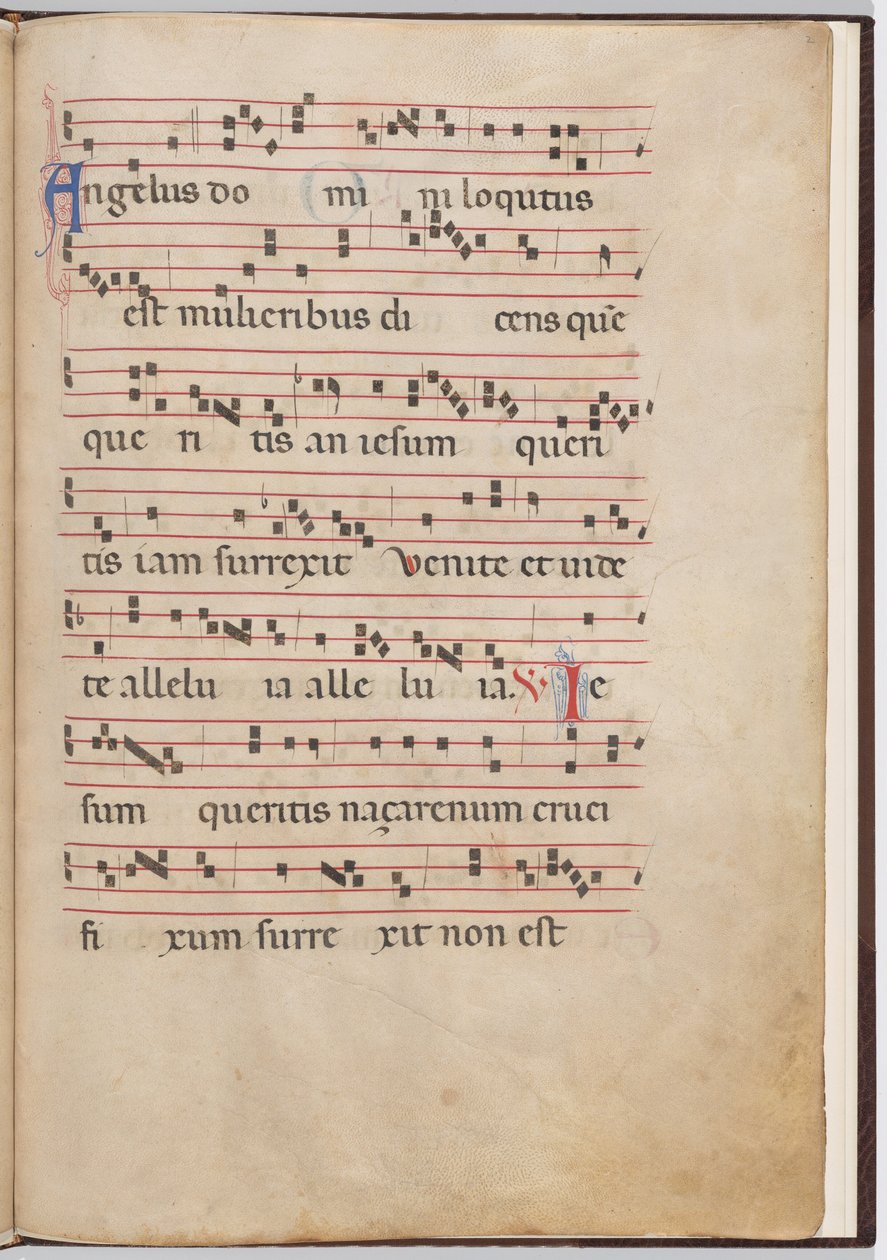 2
Angelus do mi ni loqutus
est mulieribus di cens quē
que ri tis an iesum queri
tis iam surrexit Venite et uide
te allelu ia alle lu ia. ℣. Ie
sum queritis naçarenum cruci
fi xum surre xit non est